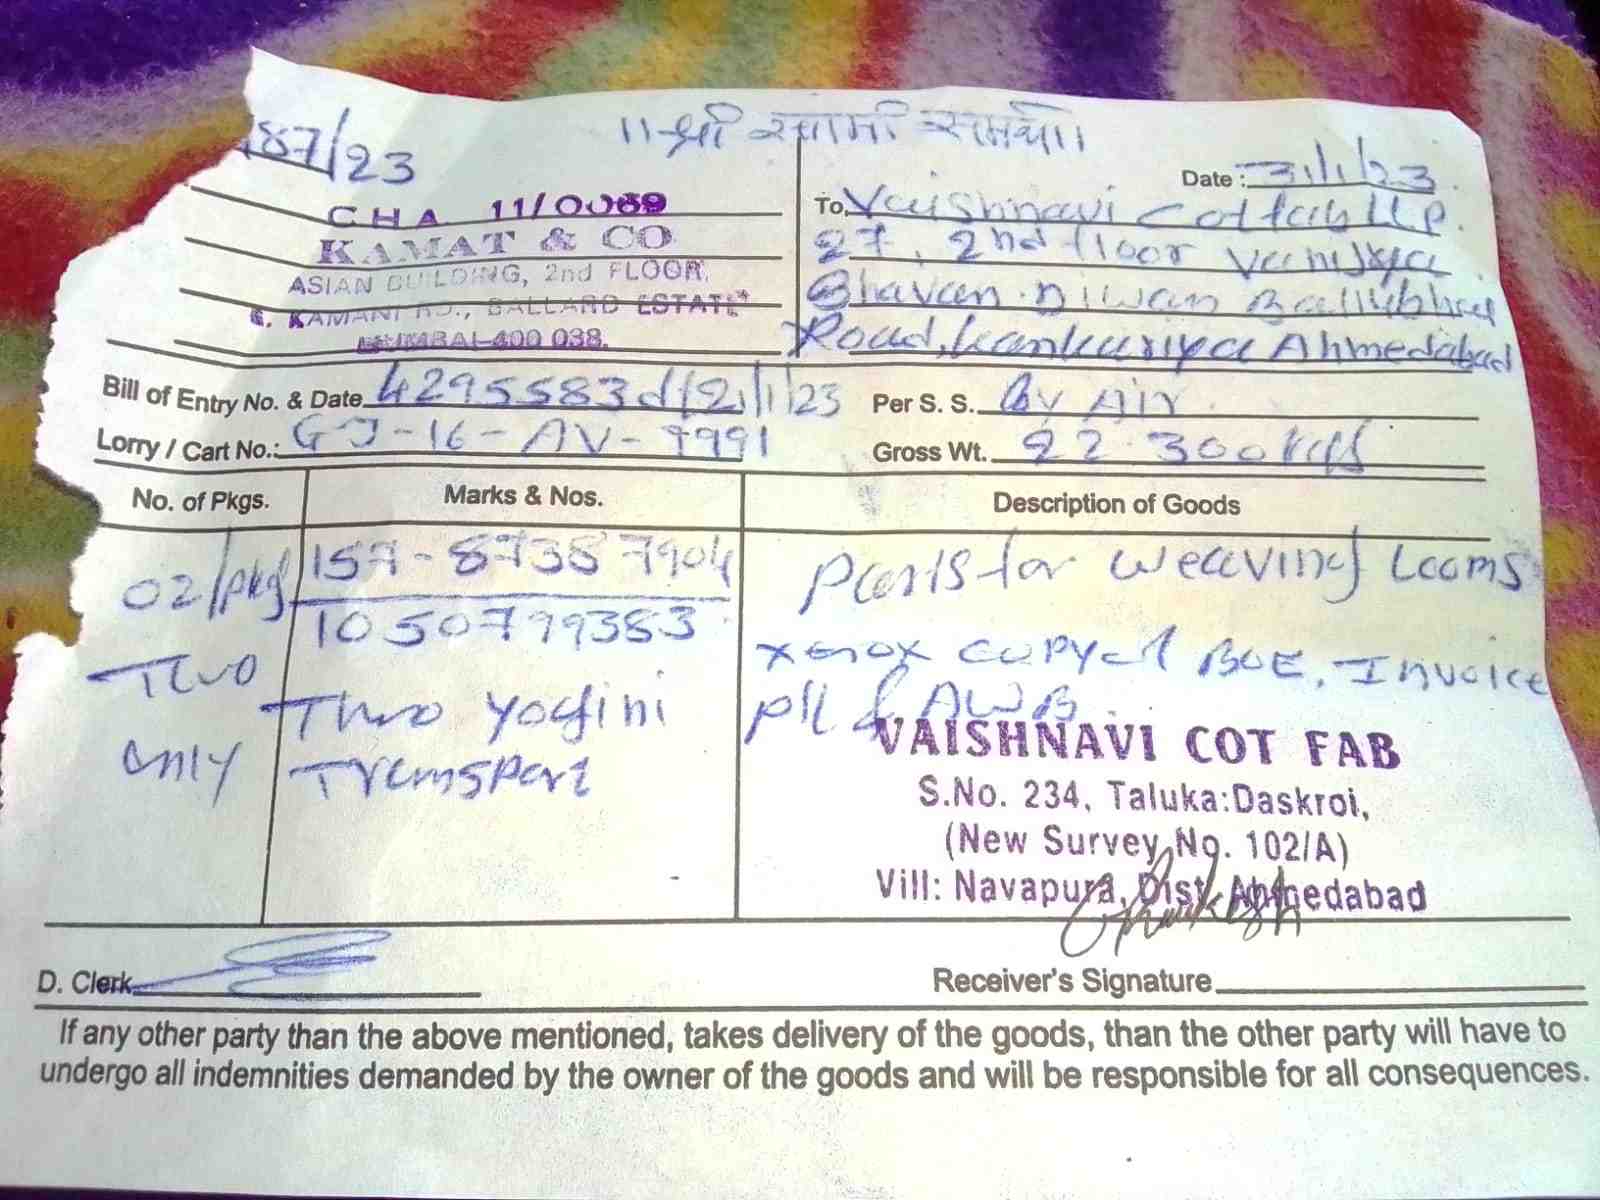 87/23
॥ श्री स्वामी समर्थ ॥
Date : 31/1/23
CHA 11/0069
KAMAT & CO
ASIAN BUILDING, 2nd FLOOR,
KAMANI RD., BALLARD ESTATE
MUMBAI-400 038.
To, Vaishnavi Cotfab LLP.
27, 2nd floor Vanijya
Bhavan. Diwan Ballubhai
Road, Kankariya Ahmedabad
Bill of Entry No. & Date 4295583 dt 21/1/23
Per S. S. By Air.
Lorry / Cart No.: GJ-16-AV-9991
Gross Wt. 22.300 kgs
No. of Pkgs.
Marks & Nos.
Description of Goods
02/pkgs
Two
only
157-87387904
1050799383
Thro Yogini
Transport
Parts for weaving Looms
xerox copy of BOE, Invoice
P/L & AWB.
VAISHNAVI COT FAB
S.No. 234, Taluka:Daskroi,
(New Survey No. 102/A)
Vill: Navapura, Dist. Ahmedabad
D. Clerk
Receiver's Signature
If any other party than the above mentioned, takes delivery of the goods, than the other party will have to
undergo all indemnities demanded by the owner of the goods and will be responsible for all consequences.